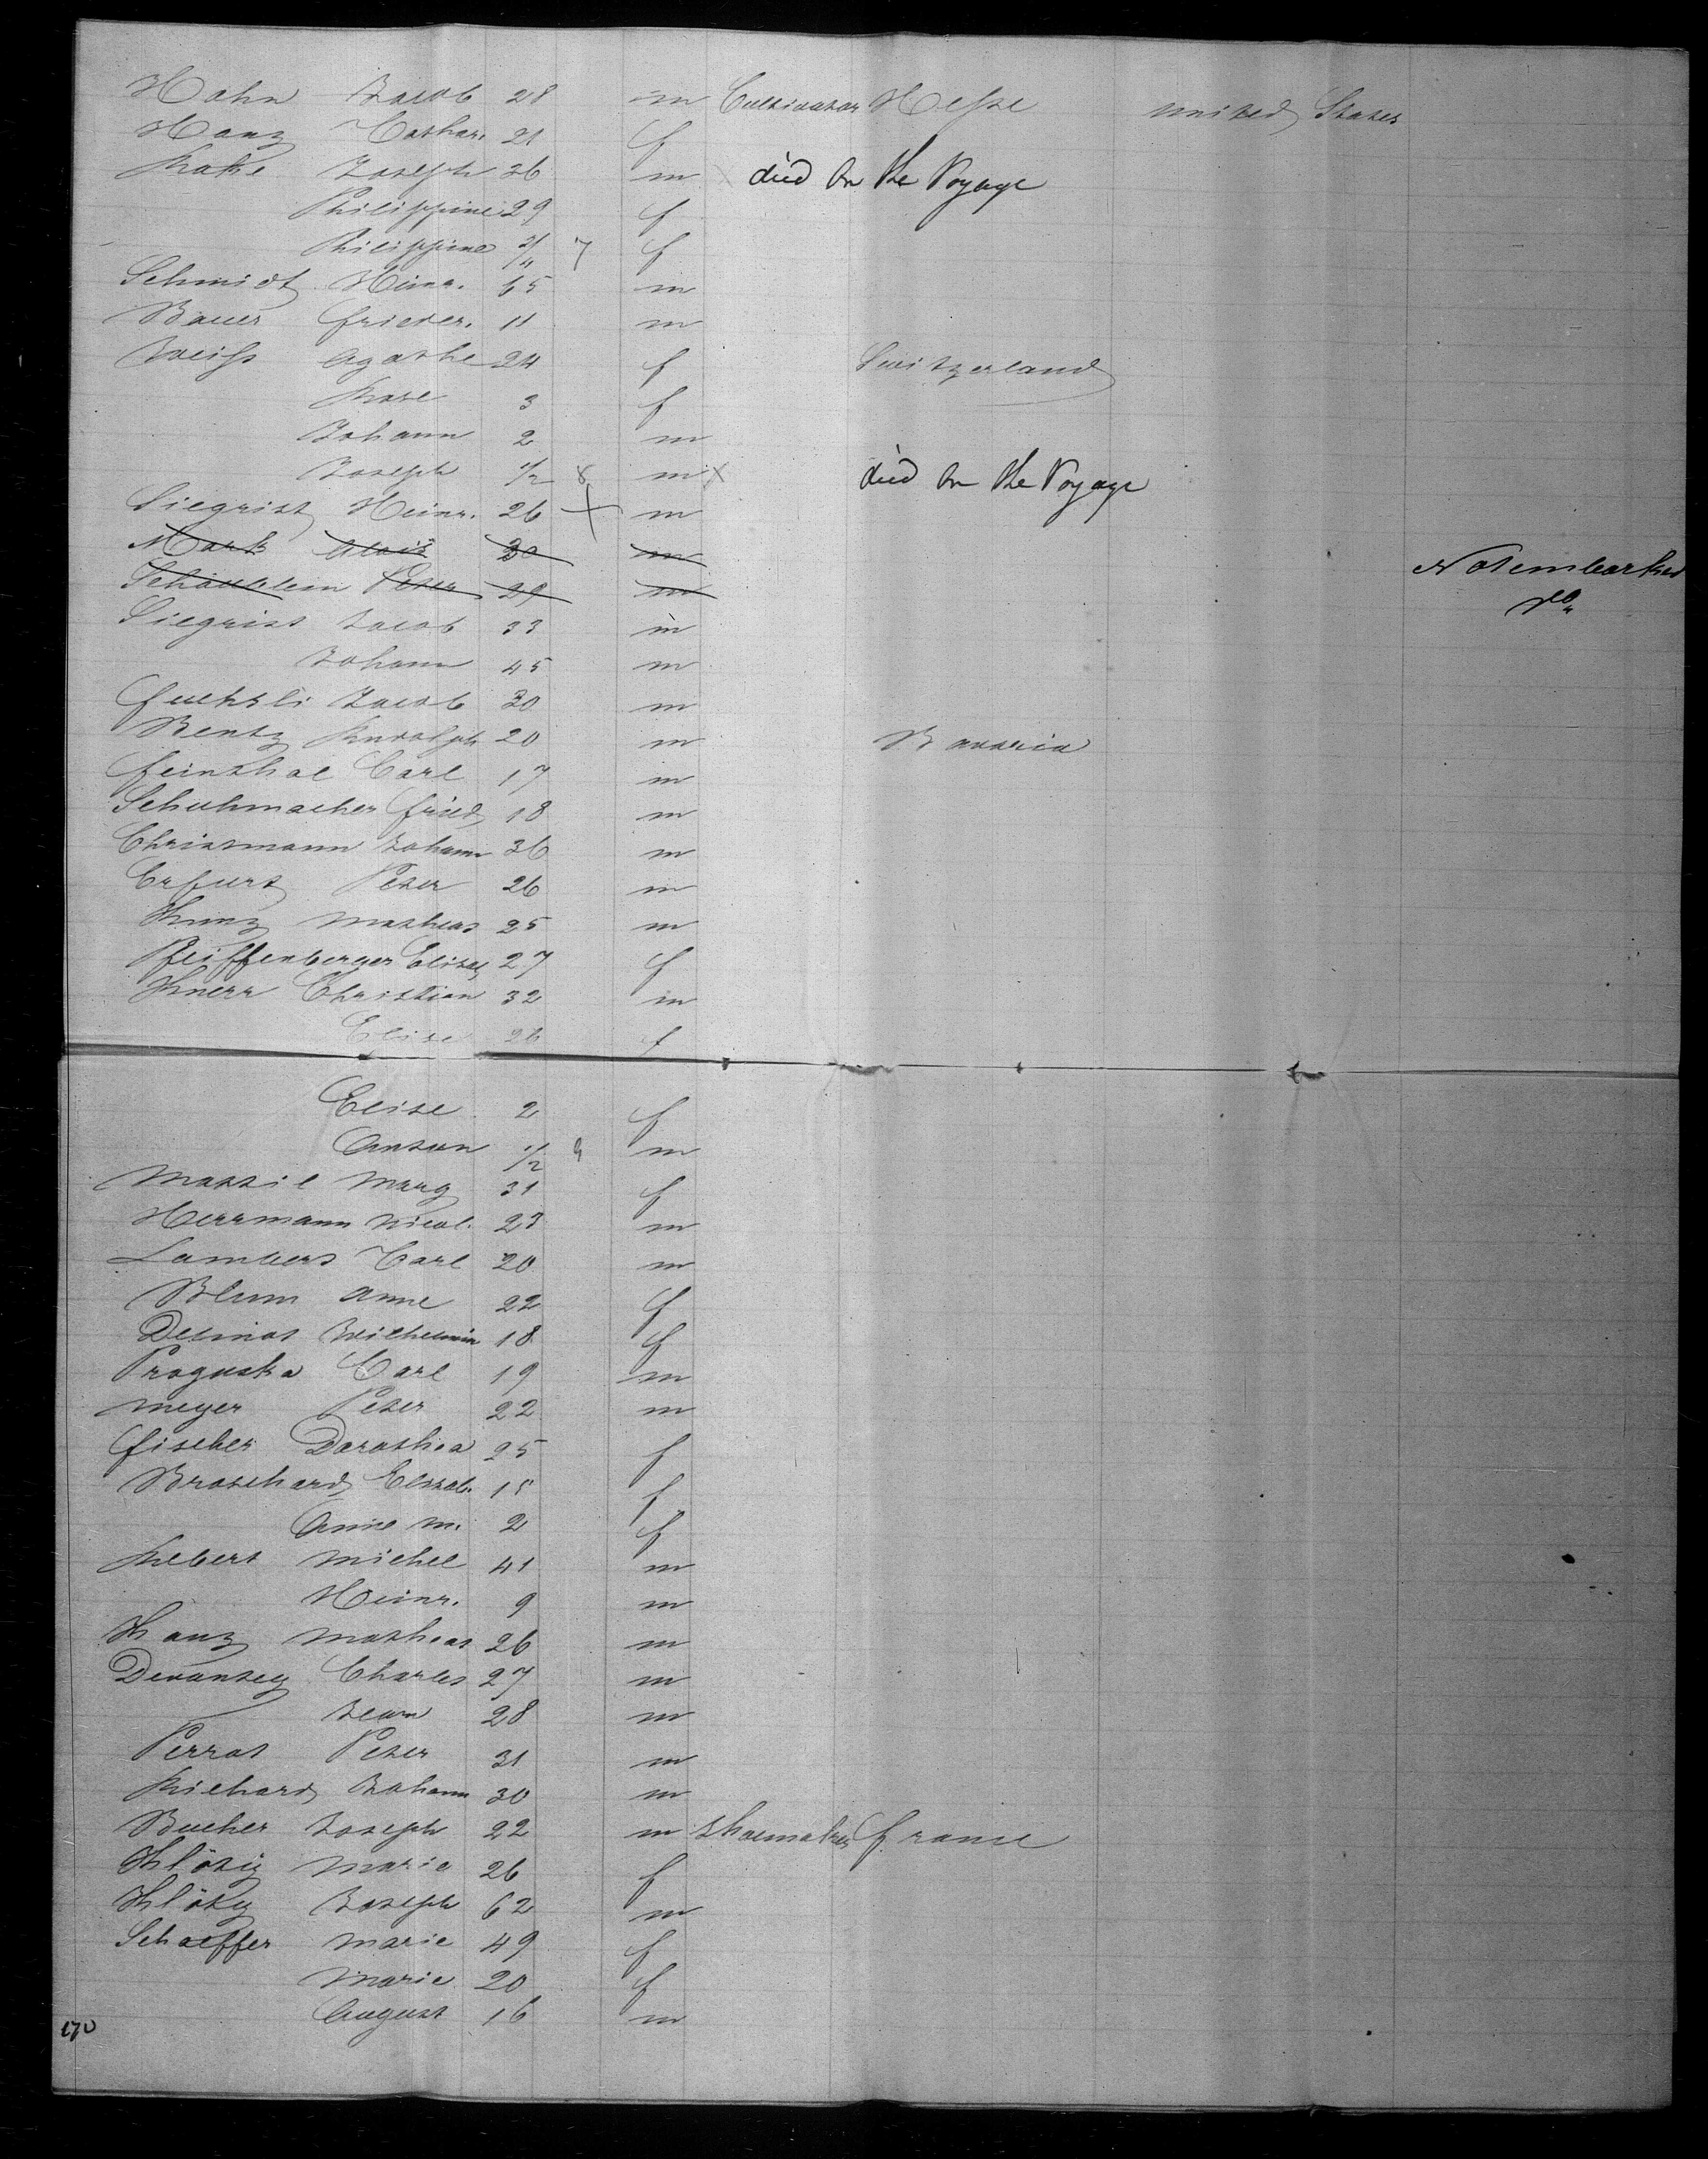 Hahn Jacob 28 m Cultivator Hesse united States
Hanz Cathar. 21 f
Jozeph 26 m died on the Voyage
Philippine 29 f
Philippine 2/11 7 f
Schmidt Heinr. 65 m
Bauer Frieder. 11 m
Weiss Agathe 24 f Switzerland
Rose 3 f
Johann 2 m
Joseph 1/2 8 m X died on the Voyage
Siegrist Heinr. 26 X m
Mark Alois 30 m Not embarked
Schäublein Peter 29 m do
Siegrist Jacob 33 m
Johann 45 m
Fuchsli Jacob 30 m
Bentz Rudolph 20 m Bavaria
Feinthal Carl 17 m
Schuhmacher Fried 18 m
Christmann Johann 36 m
Erfurt Peter 26 m
Kunz Mathias 25 m
Pfeiffenberger Elise 27 f
Knerr Christian 32 m
Elise 26 f
Elise 2 f
Anton 1/2 9 m
Marg 31 f
Herrmann Nicol. 23 m
Lambert Carl 20 m
Blum Anne 22 f
Wilhelmin 18 f
Carl 19 m
Meyer Peter 22 m
Fischer Dorothea 25 f
Broschard Elisab. 15 f
Anne M. 2 f
Michel 41 m
Heinr. 9 m
Kanz Mathias 26 m
Charles 27 m
Jean 28 m
Perrot Peter 31 m
Richard Johann 30 m
Bucher Joseph 22 m Shoemaker France
Marie 26 f
Joseph 62 m
Schaeffer Marie 49 f
Marie 20 f
August 16 m
170